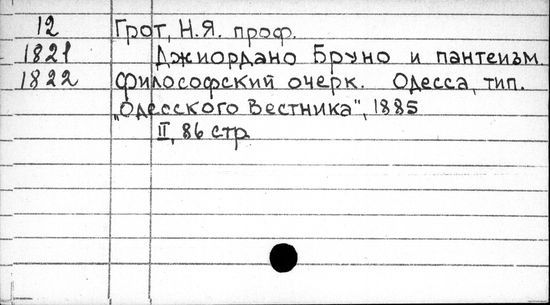 12 Грот, Н.Я. проф.
1821 Джиордано Бруно и пантеизм
1822 философский очерк. Одесса, тип.
„Одесского Вестника", 1885
II, 86 стр